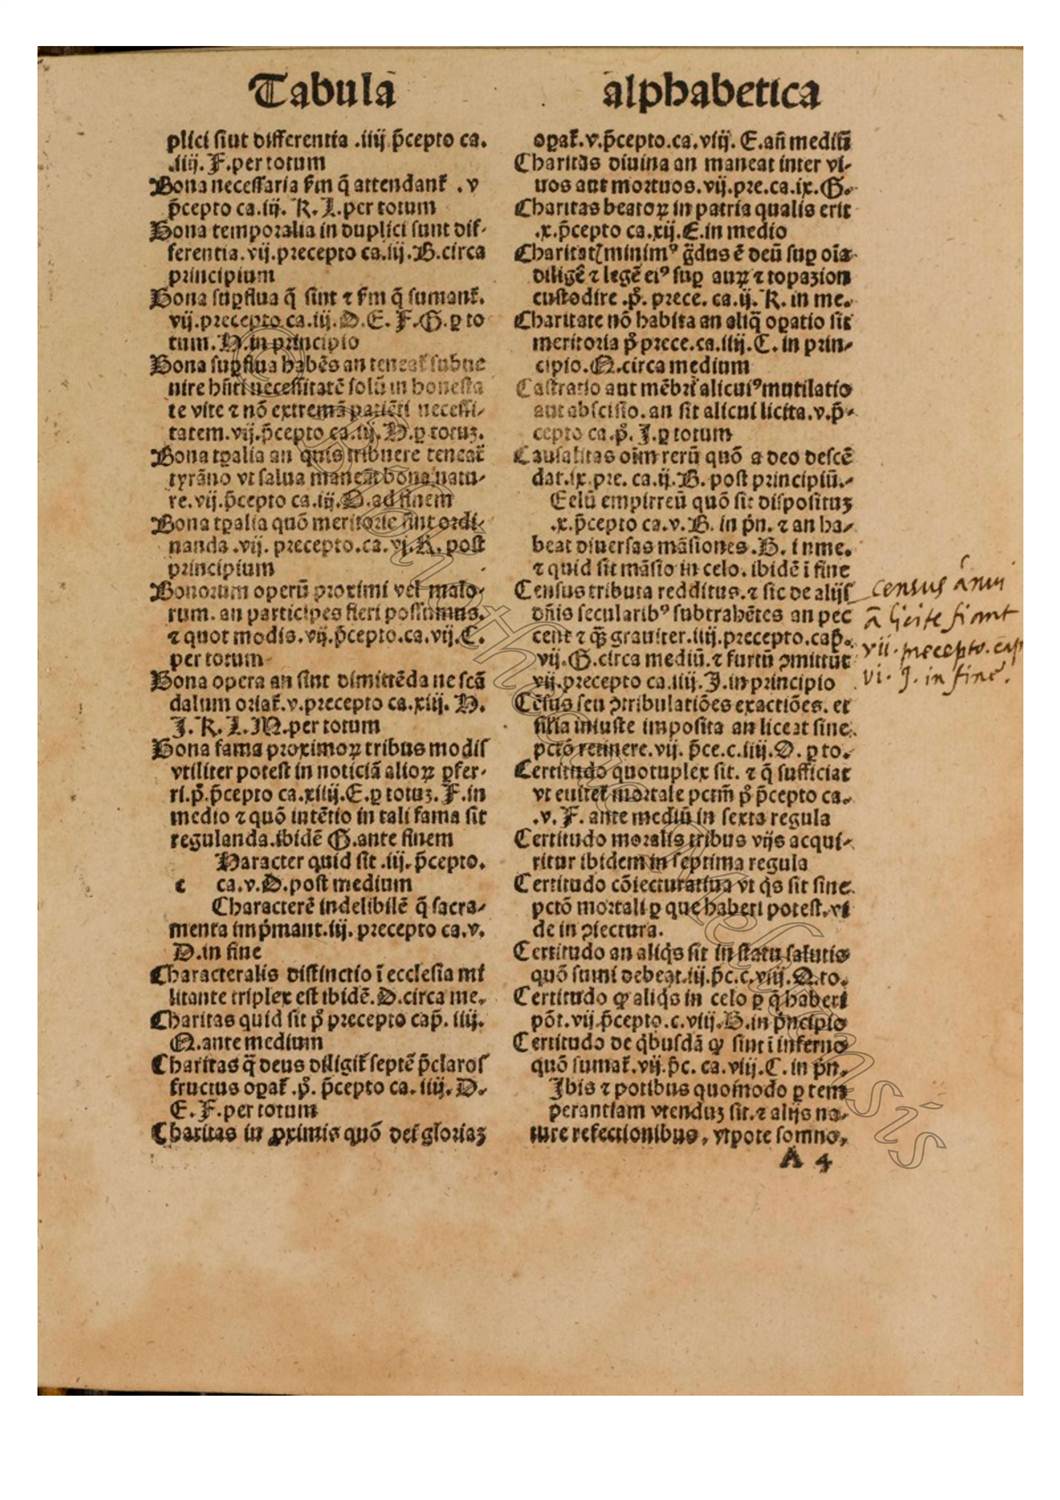 Tabula alphabetica
plici sint differentia .iiij p̄cepto ca.
.iiij. F.per totum
Bona necessaria fm q̄ attendant̄ . v
p̄cepto ca.iij. K. L.per totum
Bona temporalia in duplici sunt dif-
ferentia.vij.precepto ca.iij.B.circa
principium
Bona suꝑflua q̄ sint ⁊ fm q̄ sumant̄.
vij.precepto ca.iij.D.E. F.G.ꝑ to
tum.H.in principio
Bona suꝑflua habēs an teneat̄ subue
nire hn̄ti necessitatē solū in honesta
te vite ⁊ nō extremā patiēti necessi-
tatem.vij.p̄cepto ca.iij.H.ꝑ totuꝫ.
Bona tꝑalia an quis tribuere teneat̄
tyrāno vt salua maneāt bona natu-
re.vij.p̄cepto ca.iij.D.ad finem
Bona tꝑalia quō meritorie sint ordi-
nanda .vij. precepto.ca.vj.K. post
principium
Bonorum operū proximi vel malo-
rum. an participes fieri possumus.
⁊ quot modis.vij.p̄cepto.ca.vij.C.
per totum
Bona opera an sint dimittēda ne scā
dalum oriat̄.v.precepto ca.xiij. H.
J. K. L.M.per totum
Bona fama proximoꝝ tribus modis
vtiliter potest in noticiā alioꝝ ꝑfer-
ri.p̄.p̄cepto ca.xiiij.E.ꝑ totuꝫ. F.in
medio ⁊ quō intētio in tali fama sit
regulanda.ibidē G.ante finem
Haracter quid sit .iij. p̄cepto.
c ca.v.D.post medium
Characterē indelibilē q̄ sacra-
menta imp̄mant.iij. precepto ca.v.
D.in fine
Characteralis distinctio ī ecclesia mi
litante triplex est ibidē.D.circa me.
Charitas quid sit p̄ precepto cap̄. iiij.
N.ante medium
Charitas q̄ deus diligit̄ septē p̄claros
fructus oꝑat̄ .p̄. p̄cepto ca. iiij. D.
E. F.per totum
Charitas in ꝓximis quō dei gloriaꝫ
oꝑat̄.v.p̄cepto.ca.viij. E.an̄ mediū
Charitas diuina an maneat inter vi-
uos aut mortuos.vij.pre.ca.ix.G.
Charitas beatoꝝ in patria qualis erit
.x.p̄cepto ca.xij.E.in medio
Charitatꝭ minimꝰ ḡdus ē deū suꝑ oīa
diligē ⁊ legē eiꝰ suꝑ auꝝ ⁊ topazion
custodire .p̄. prece. ca.ij. K. in me.
Charitate nō habita an aliq̄ oꝑatio sit
meritoria p̄ prece.ca.iiij.C. in prin-
cipio.N.circa medium
Castratio aut mēbri alicuiꝰ mutilatio
aut abscisio. an sit alicui licita.v.p̄-
cepto ca.p̄. J.ꝑ totum
Causalitas oīm rerū quō a deo descē
dat.ix.pre. ca.ij.B. post principiū.
Celū empirreū quō sit disposituꝫ
.x.p̄cepto ca.v.B. in p̄n. ⁊ an ha-
beat diuersas māsiones.B. in me.
⁊ quid sit māsio in celo. ibidē ī fine
Census tributa redditus.⁊ sic de alijs
dn̄is secularibꝰ subtrahētes an pec
cent ⁊ q̄ grauiter.iiij.precepto.cap̄.
vij.G.circa mediū.⁊ furtū ꝯmittūt
vij.precepto ca.iiij.J.in principio
Cēsus seu ꝯtribulatiōes exactiōes. et
silia iniuste imposita an liceat sine
pctō retinere.vij. p̄ce.c.iiij.D.ꝑ to.
Certitudo quotuplex sit. ⁊ q̄ sufficiat
vt euitet mortale pctm̄ p̄ p̄cepto ca.
.v. F. ante mediū in sexta regula
Certitudo moralis tribus vijs acqui-
ritur ibidem in septima regula
Certitudo cōiecturatiua vt q̄s sit sine
pctō mortali ꝑ que haberi potest.vi
de in ꝯiectura.
Certitudo an aliq̄s sit in statu salutis
quō sumi debeat.iij.p̄c.c.viij.A.to.
Certitudo ꝙ aliq̄s in celo ꝑ q̄ haberi
pōt.vij.p̄cepto.c.viij.B.in p̄ncipio
Certitudo de q̄busdā ꝙ sint ī inferno
quō sumat̄.vij.p̄c. ca.viij.C. in p̄n.
Jbis ⁊ potibus quomodo ꝑ tem
perantiam vtenduꝫ sit.⁊ alijs na-
ture refectionibus, vtpote somno,
A 4
census annui
ā licite fiant
vii. precepto. cap
vi. J. in fine.